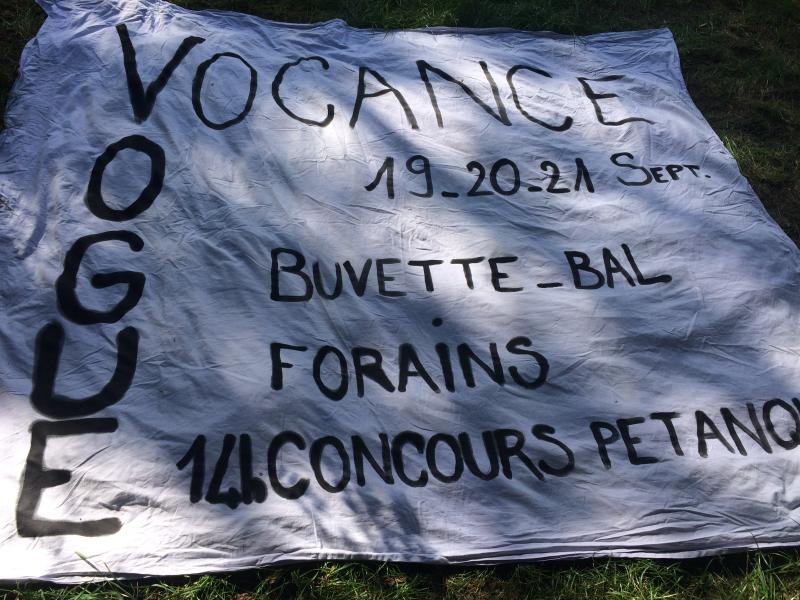 VOCANCE
VOGUE
19-20-21 SEPT.
BUVETTE-BAL
FORAINS
14h CONCOURS PETANQU